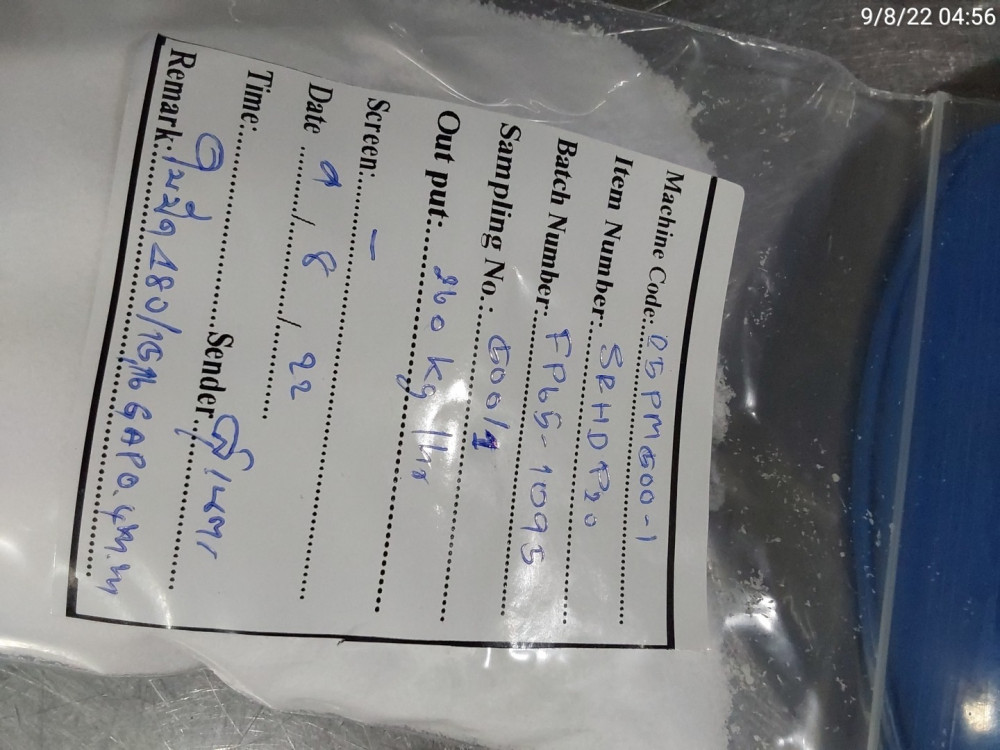 9/8/22 04:56
Machine Code: 05PM600-1
Item Number: SRHDP20
Batch Number: FP65-1095
Sampling No. 600/1
Out put: 260 kg/hr
Screen: -
Date 9 / 8 / 22
Time: Sender
Remark: ใบมีด 480/16,16 GAP0.4 ม.ม